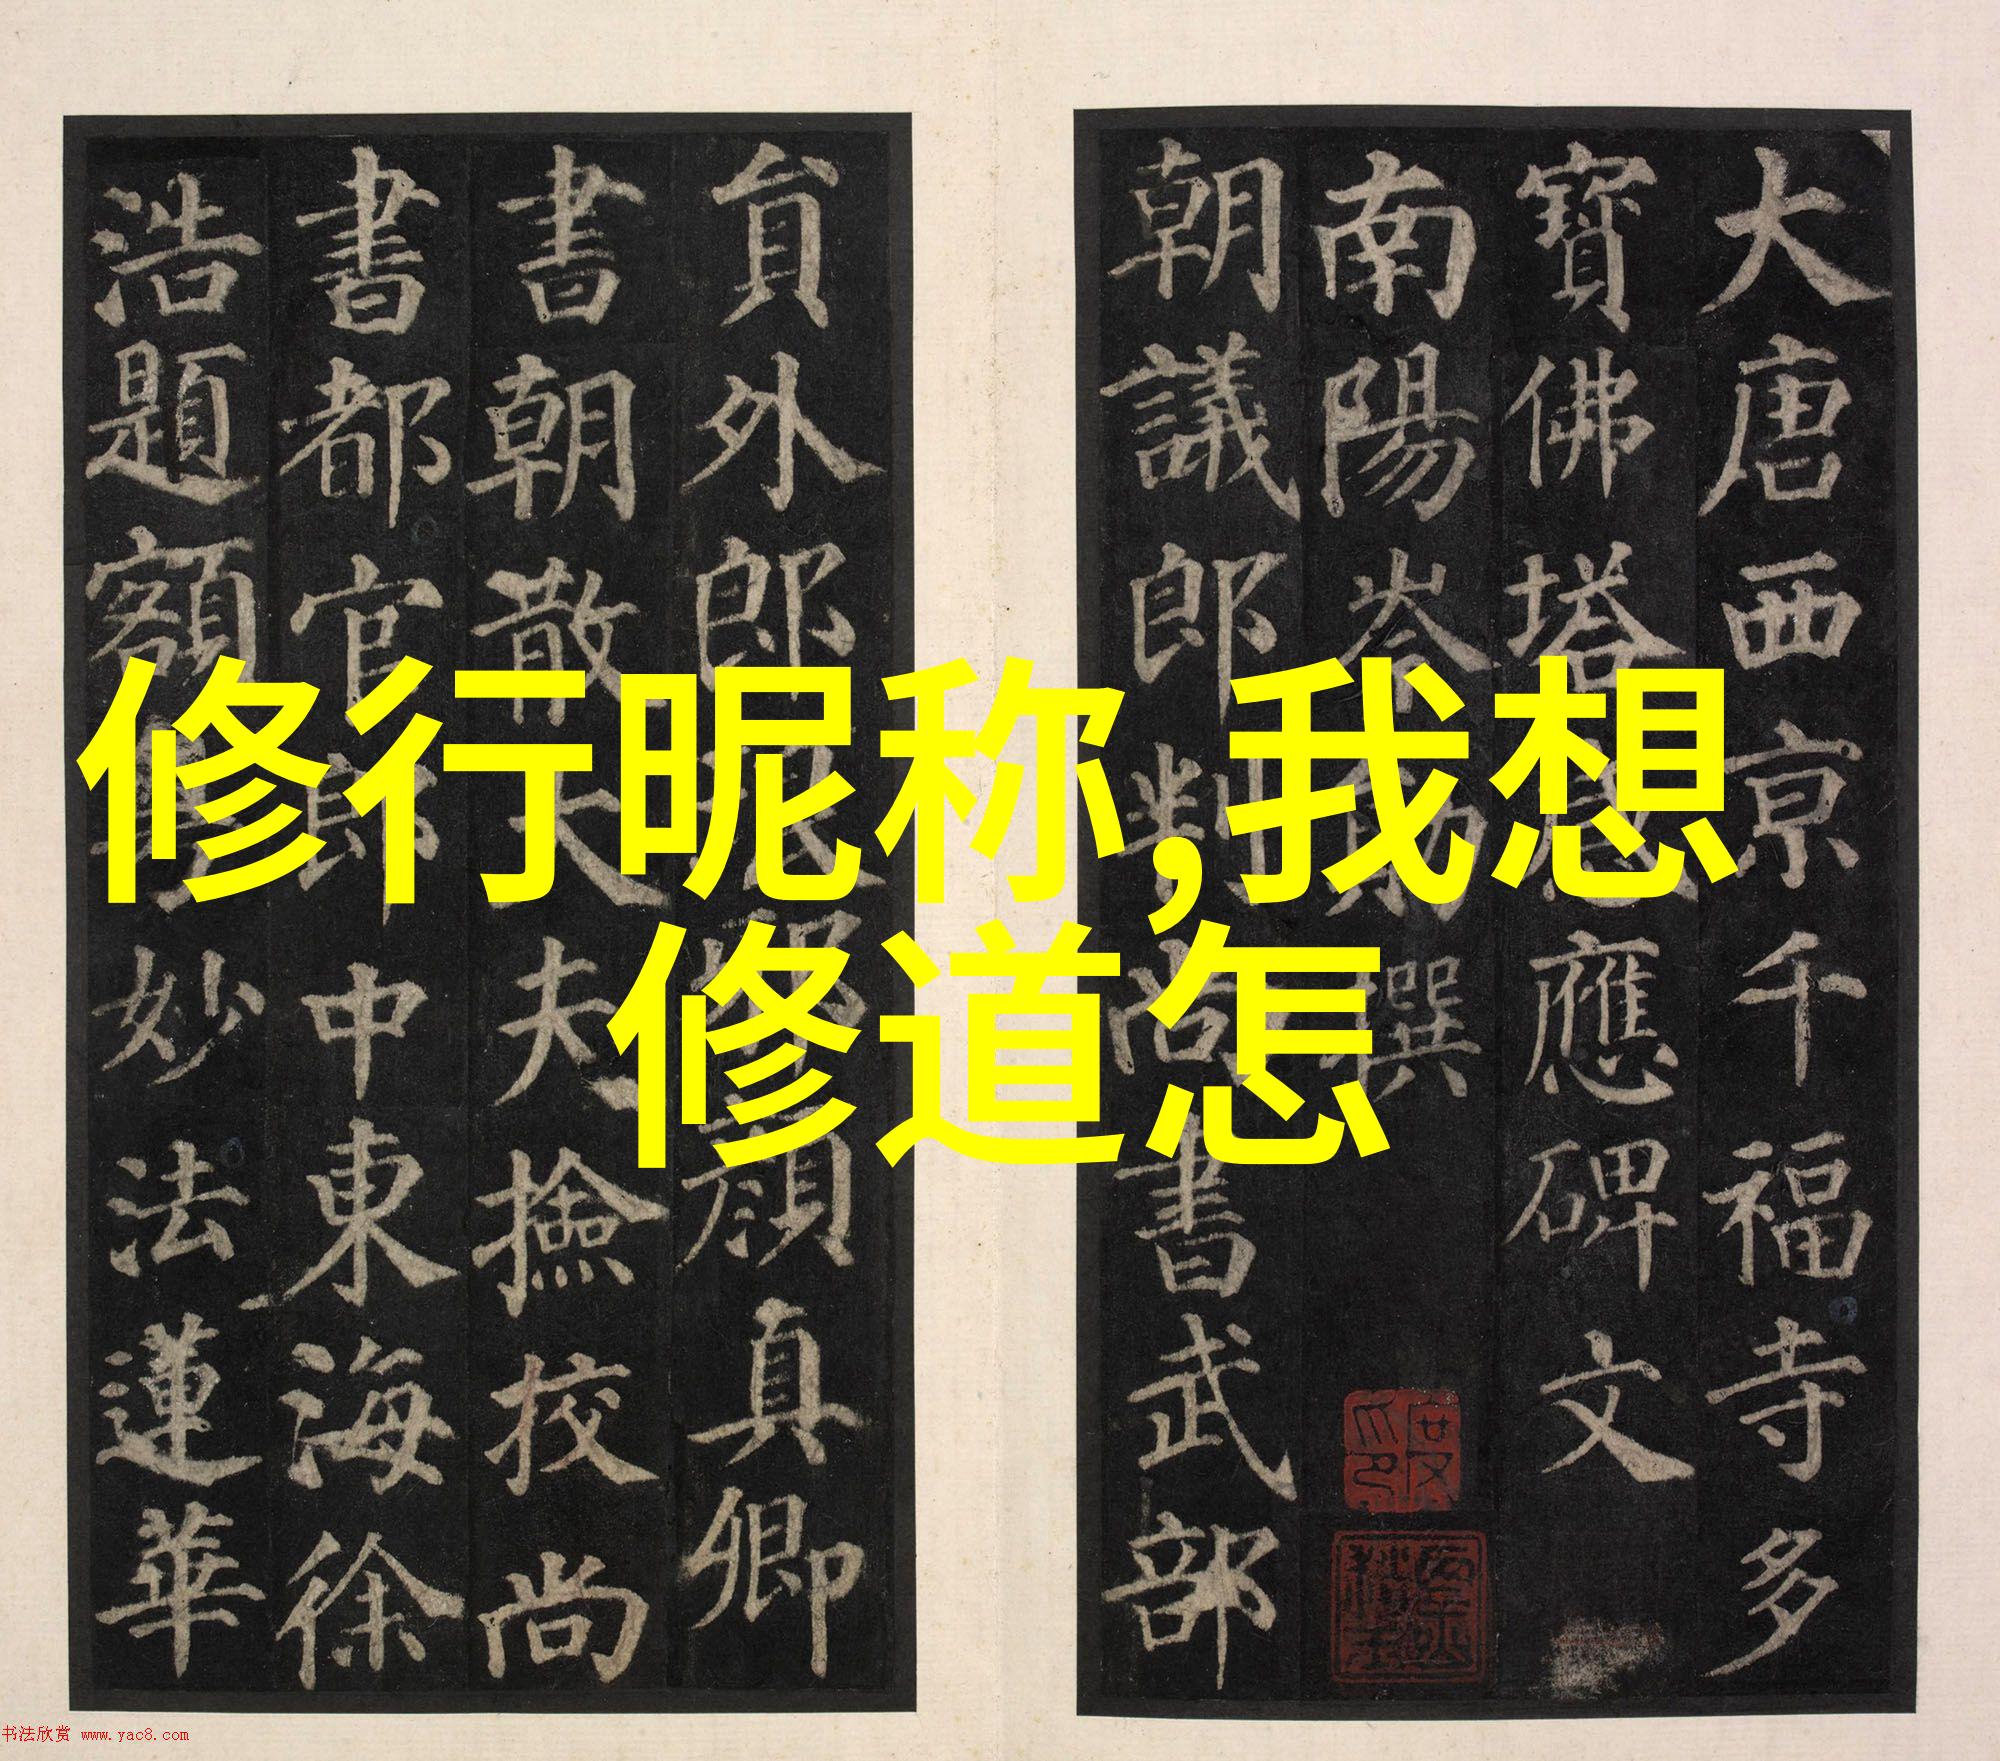 大唐西京千福寺多
寶佛塔感應碑文
南陽岑勛撰
朝議郎判尚書武部
貟外郎琅邪顏真卿
書朝散大夫撿挍尚
書都官郎中東海徐
浩題額
妙法蓮華
修行昵称,我想
修道怎
书法欣赏 www.yac8.com